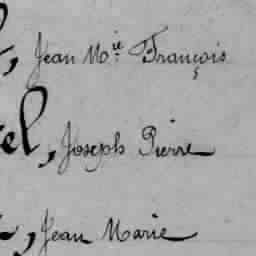 , Jean M.ie François
el, Joseph Pierre
, Jean Marie